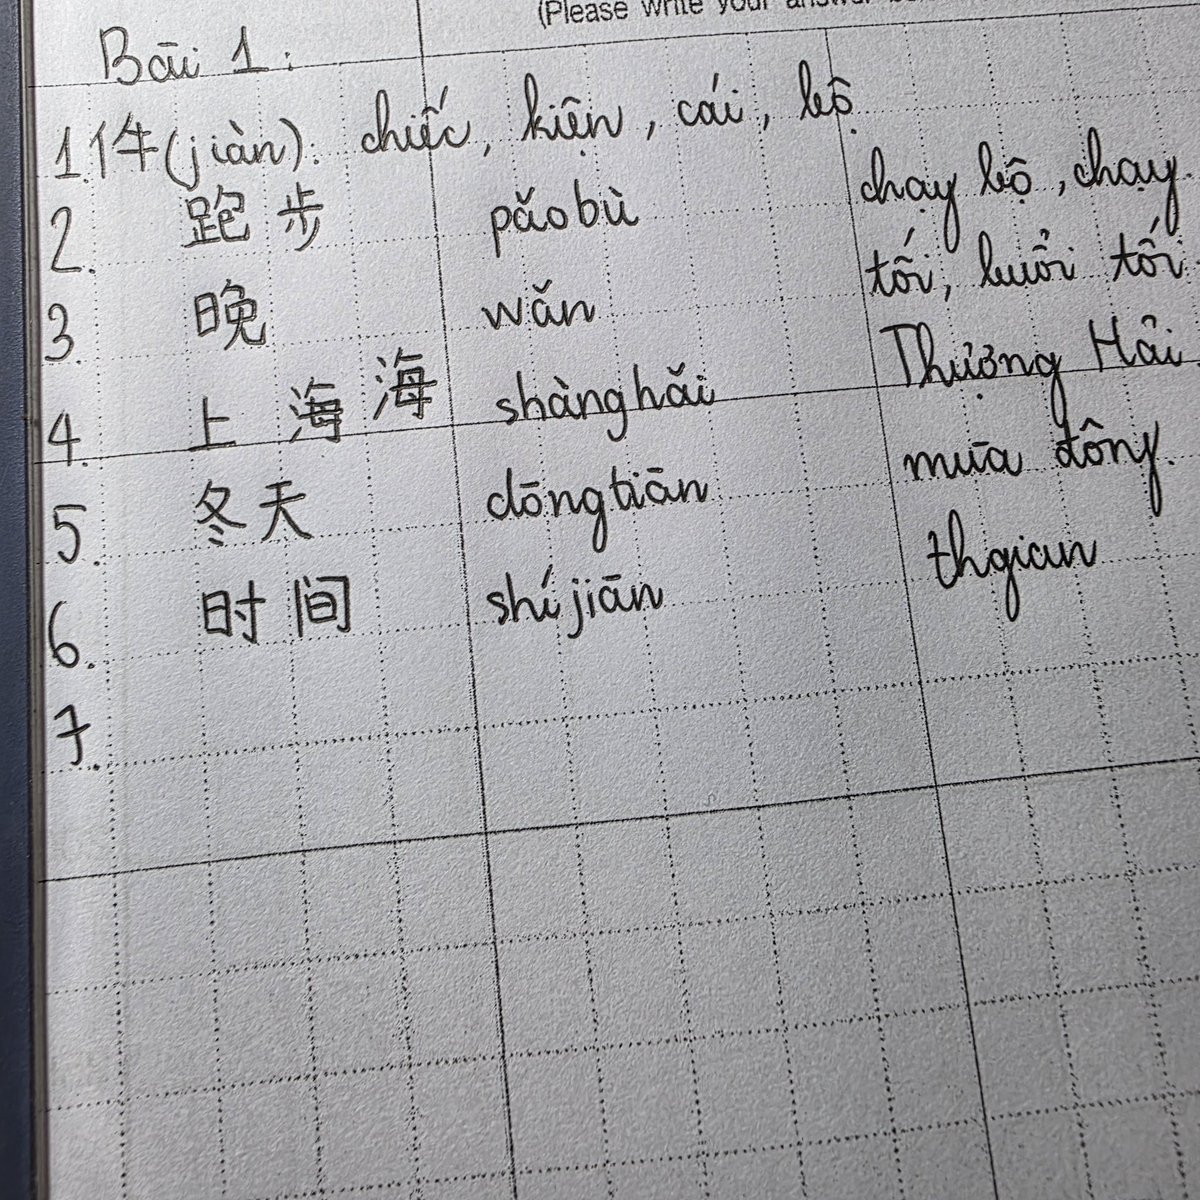 (Please write your answer
Bài 1:
1. 件(jiàn): chiếc, kiện, cái, bộ
2. 跑步 pǎobù chạy bộ, chạy
3. 晚 wǎn tối, buổi tối
4. 上海海 shànghǎi Thượng Hải
5. 冬天 dōngtiān mùa đông
6. 时间 shíjiān thgian
7.